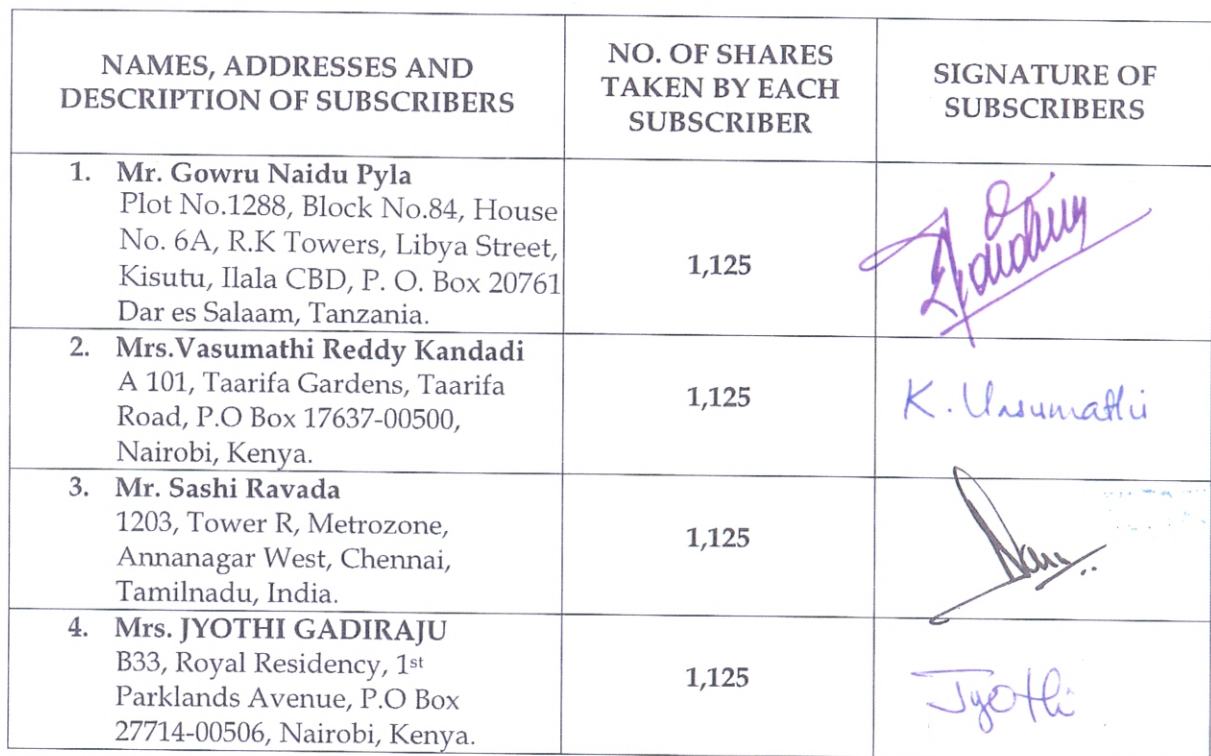 NAMES, ADDRESSES AND
DESCRIPTION OF SUBSCRIBERS
NO. OF SHARES
TAKEN BY EACH
SUBSCRIBER
SIGNATURE OF
SUBSCRIBERS
1. Mr. Gowru Naidu Pyla
Plot No.1288, Block No.84, House
No. 6A, R.K Towers, Libya Street,
Kisutu, Ilala CBD, P. O. Box 20761
Dar es Salaam, Tanzania.
1,125
2. Mrs.Vasumathi Reddy Kandadi
A 101, Taarifa Gardens, Taarifa
Road, P.O Box 17637-00500,
Nairobi, Kenya.
1,125
K. Vasumathi
3. Mr. Sashi Ravada
1203, Tower R, Metrozone,
Annanagar West, Chennai,
Tamilnadu, India.
1,125
4. Mrs. JYOTHI GADIRAJU
B33, Royal Residency, 1st
Parklands Avenue, P.O Box
27714-00506, Nairobi, Kenya.
1,125
Jyothi